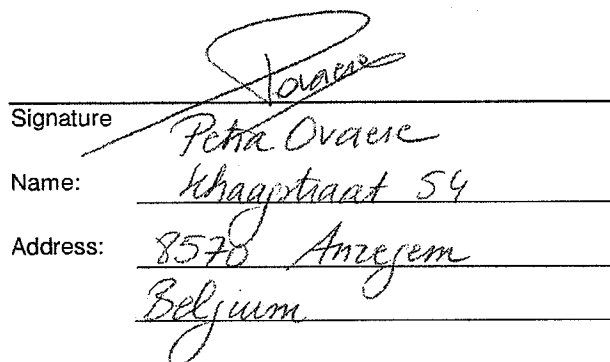 Povaere
Signature
Petra Ovaere
Name:
54
Address: 8570 Anzegem
Belgium